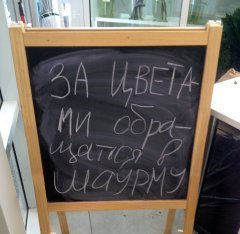 ЗА ЦВЕТА-
МИ обра-
щатся в
ШАУРМУ